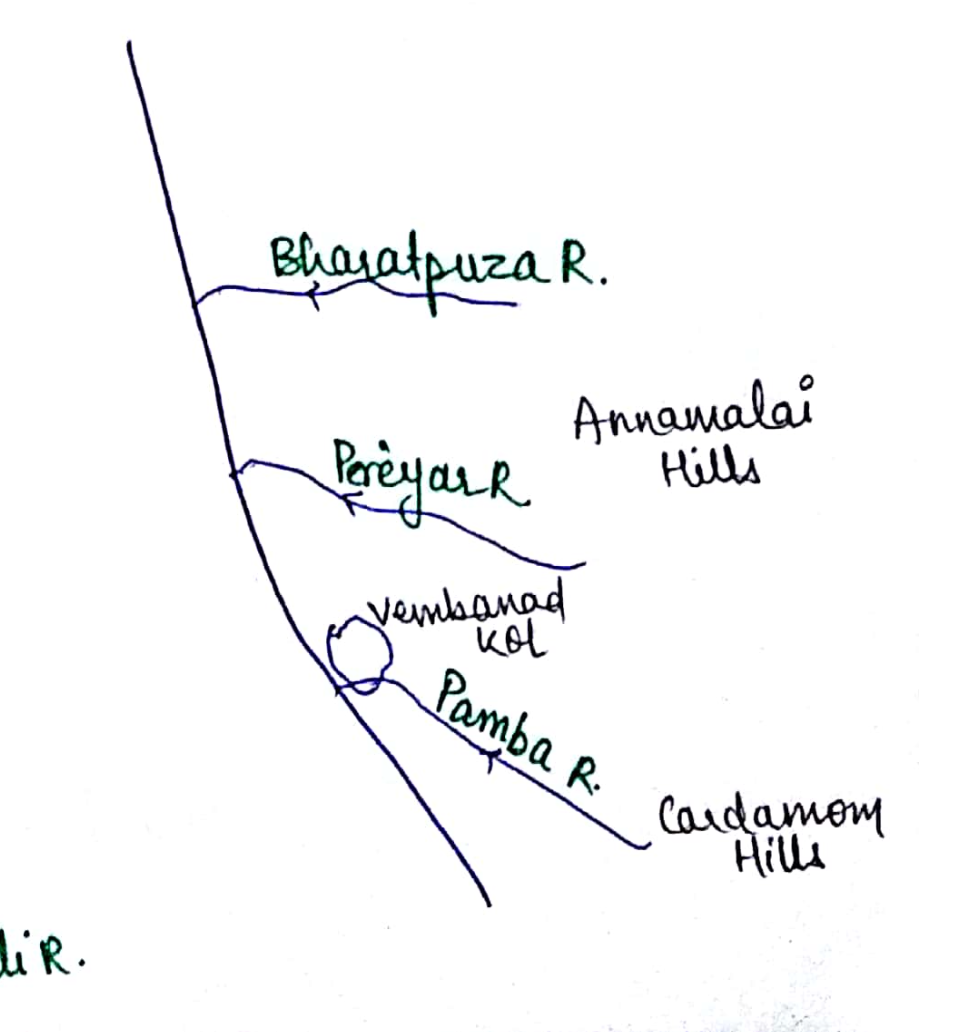 Bharatpuza R.
Annamalai
Hills
Periyar R
Vembanad
Kol
Pamba R.
Cardamom
Hills
di R.